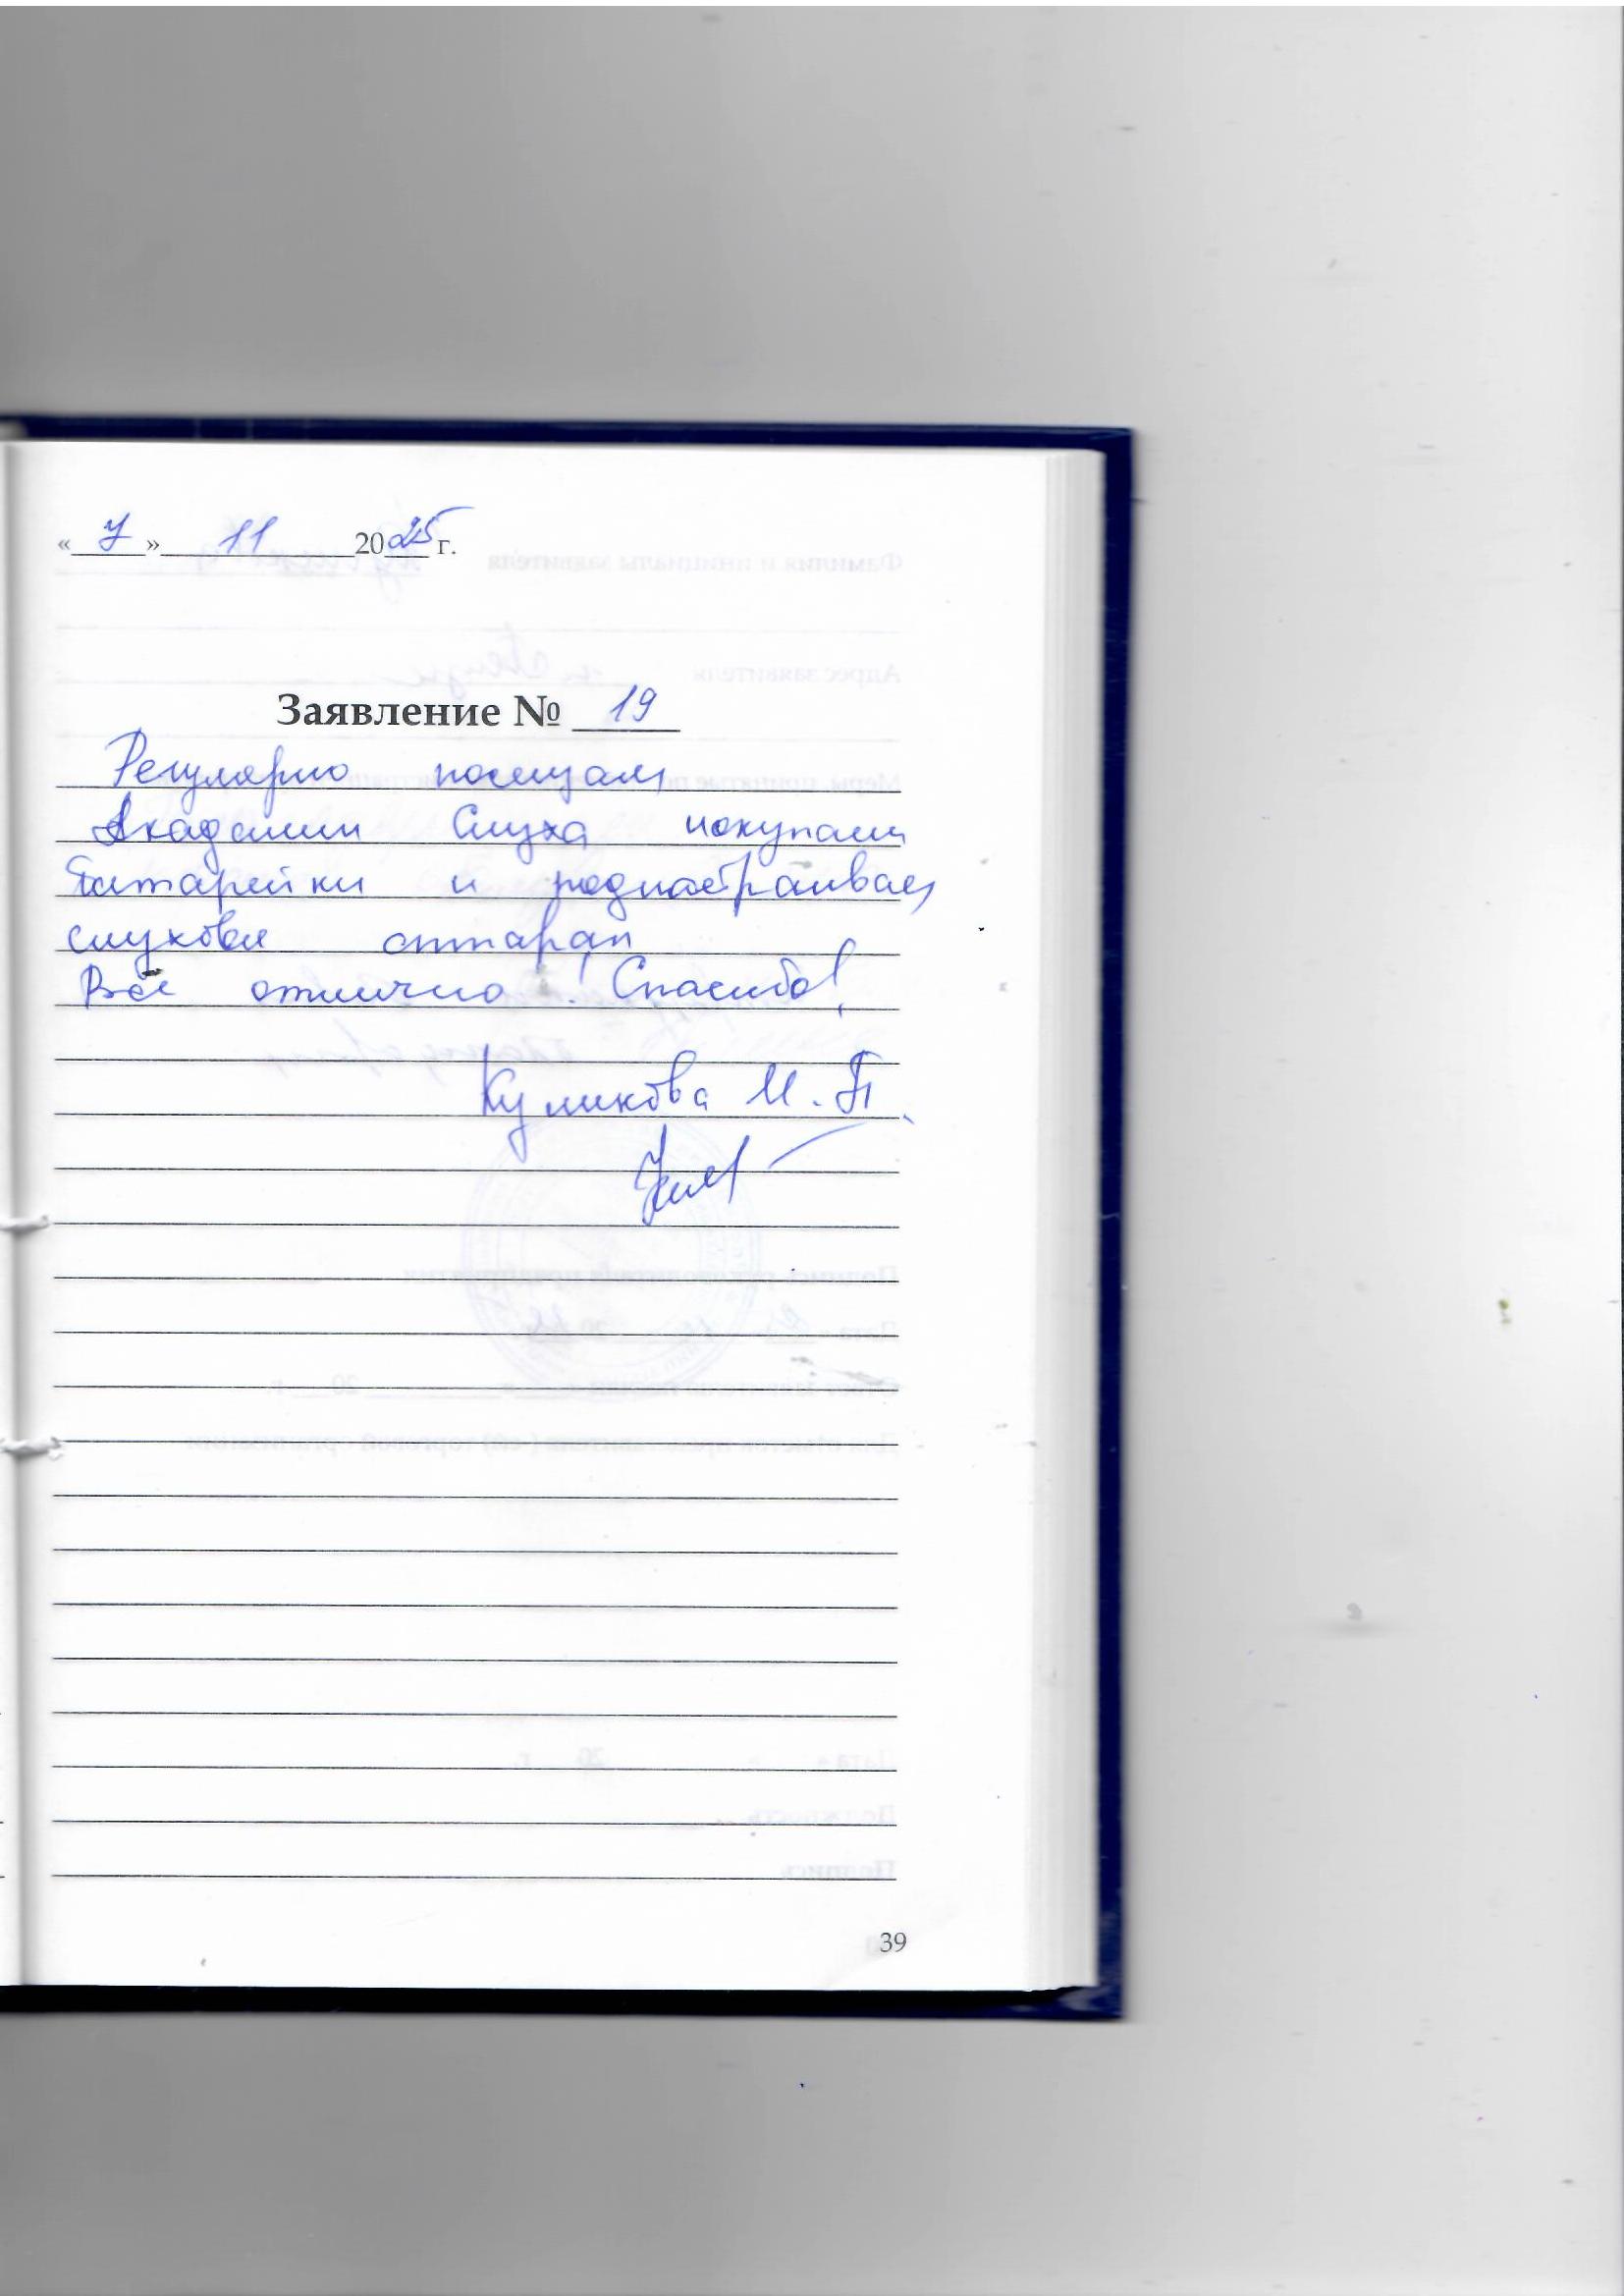 « 7 » 11 2025 г.
Заявление № 19
Регулярно посещаем
Академии Слуха покупаем
батарейки и поднастраиваем
слуховой аппарат
Всё отлично! Спасибо!
Куликова И. П.
39